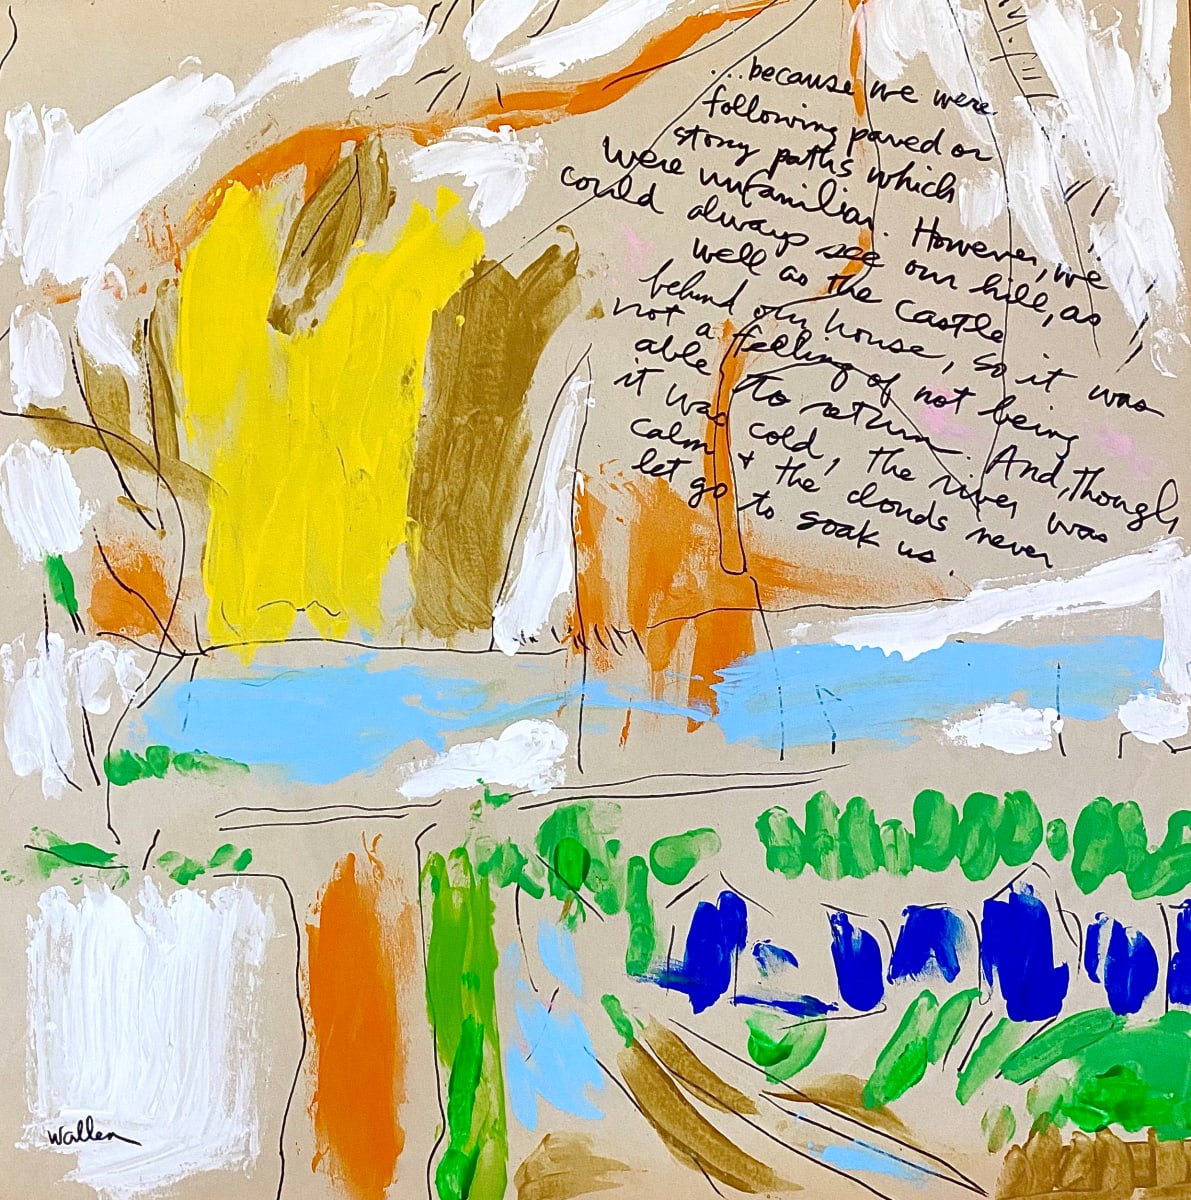 ...because we were
following paved or
stony paths which
were unfamiliar. However, we
could always see our hill, as
well as the Castle
behind our house, so it was
not a feeling of not being
able to return. And, though
it was cold, the river was
calm + the clouds never
let go to soak us.
Wallen